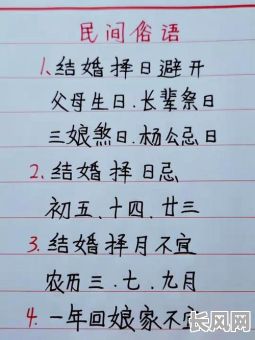 民间俗语
1、结婚择日避开
父母生日、长辈祭日
三娘煞日、杨公忌日
2、结婚择日忌
初五、十四、廿三
3、结婚择月不宜
农历三、七、九月
4、一年回娘家不宜
长风网
cfw.cn